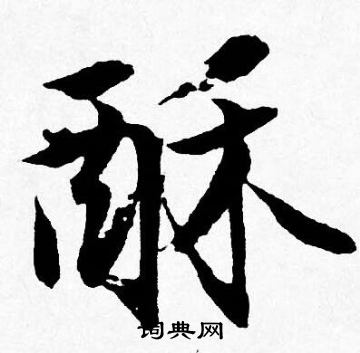 酥
词典网